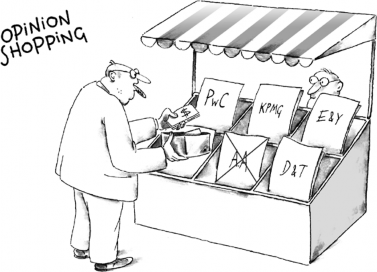 OPINION
SHOPPING
PwC
KPMG
E&Y
AA
D&T
$